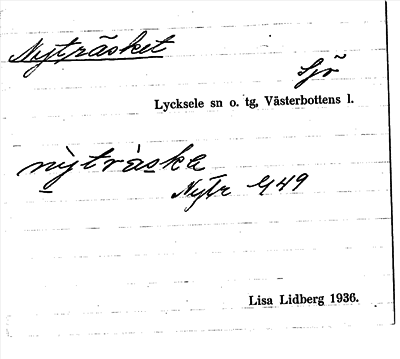 Nyträsket
Sjö
Lycksele sn o. tg, Västerbottens l.
nyträske
NyTr 449
Lisa Lidberg 1936.